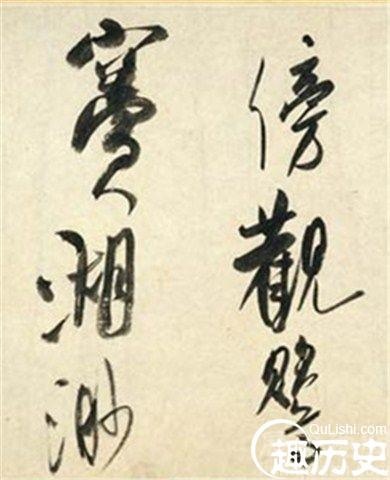 傍觀鸎
竇湖渺
QuLishi.com
趣历史